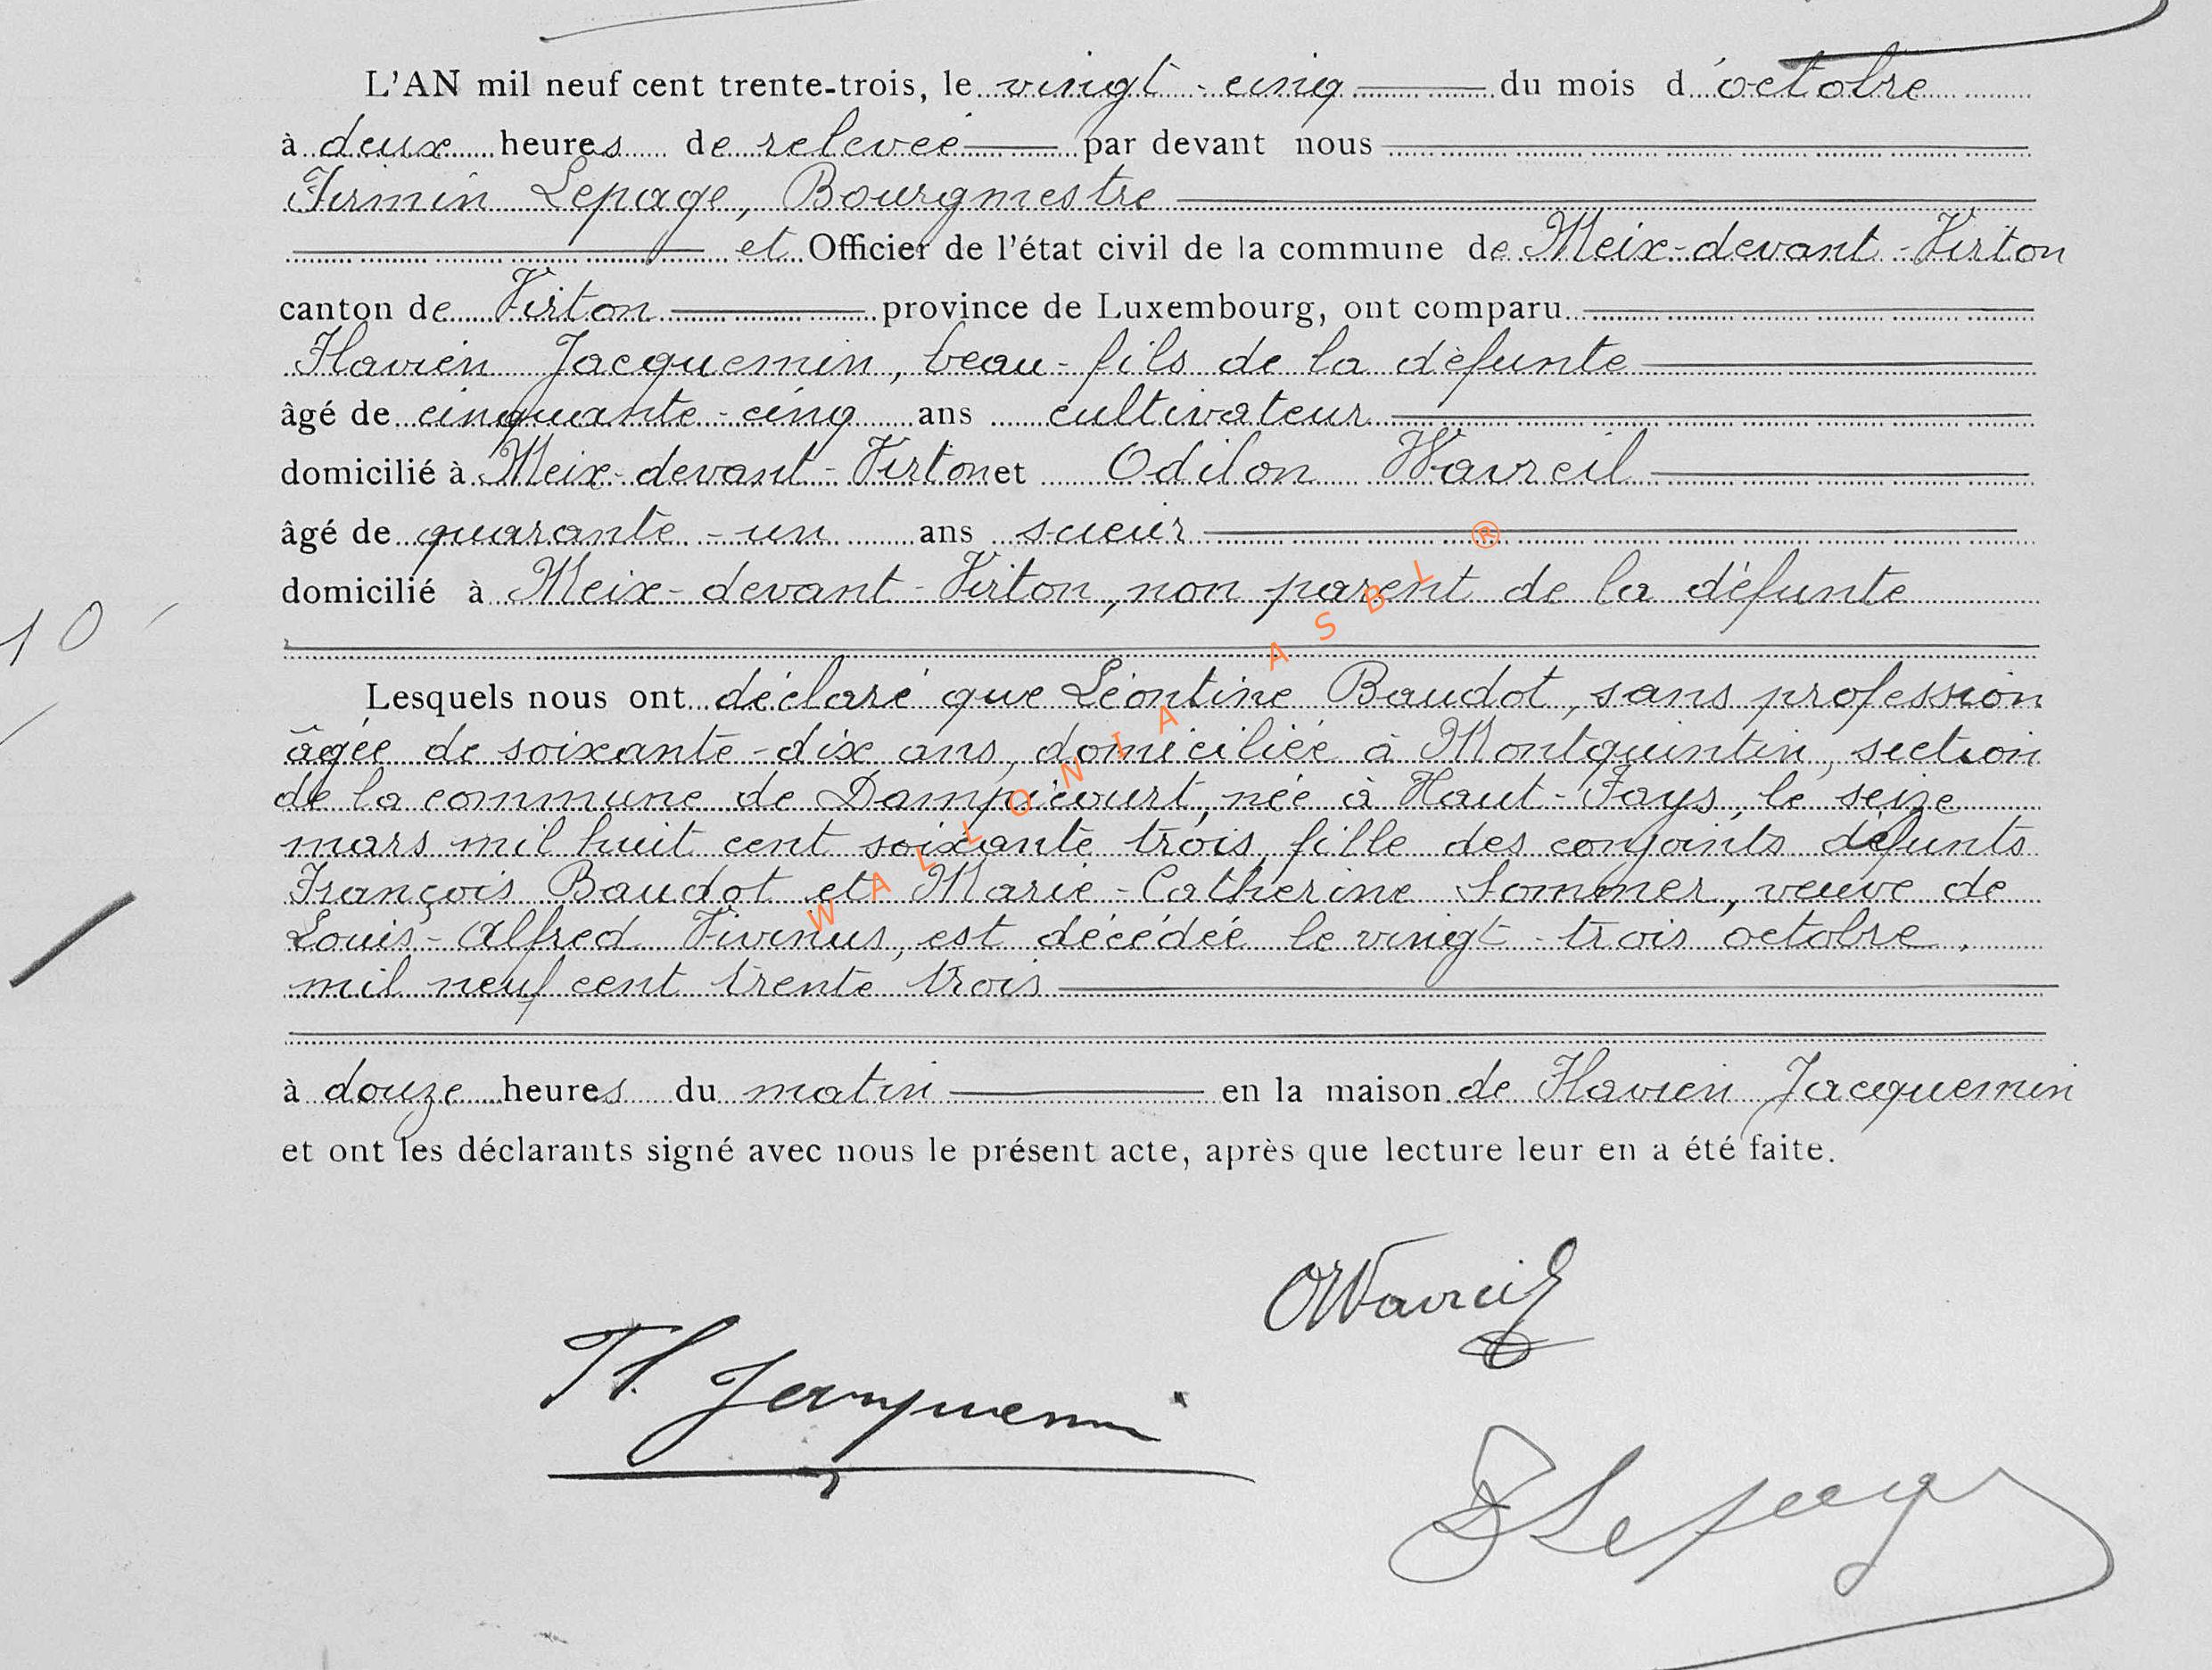 L'AN mil neuf cent trente-trois, le vingt-cinq du mois d'octobre
à deux heures de relevée par devant nous
Firmin Lepage, Bourgmestre
et Officier de l'état civil de la commune de Meix-devant-Virton
canton de Virton province de Luxembourg, ont comparu
Flavien Jacquemin, beau-fils de la défunte
âgé de cinquante-cinq ans cultivateur
domicilié à Meix-devant-Virton et Odilon Wavreil
âgé de quarante-un ans scieur
domicilié à Meix-devant-Virton, non parent de la défunte
10
Lesquels nous ont déclaré que Léontine Baudot, sans profession
âgée de soixante-dix ans, domiciliée à Montquintin, section
de la commune de Dampicourt, née à Haut-Fays, le seize
mars mil huit cent soixante trois, fille des conjoints défunts
François Baudot et Marie-Catherine Sommer, veuve de
Louis-Alfred Vivinus, est décédée le vingt-trois octobre,
mil neuf cent trente trois
à douze heures du matin en la maison de Flavien Jacquemin
et ont les déclarants signé avec nous le présent acte, après que lecture leur en a été faite.
WALLONIA ASBL ®
OWavreil
Fl. Jacquemin
F Lepage